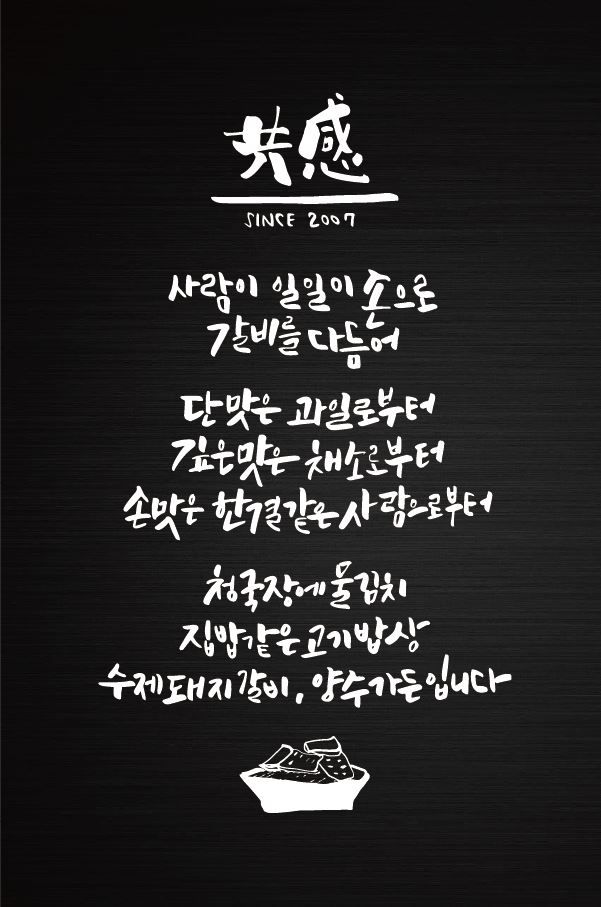 共感
SINCE 2007
사람이 일일이 손으로
갈비를 다듬어
단맛은 과일로부터
깊은맛은 채소로부터
손맛은 한결같은 사람으로부터
청국장에 물김치
집밥같은 고기밥상
수제돼지갈비, 양수가든입니다